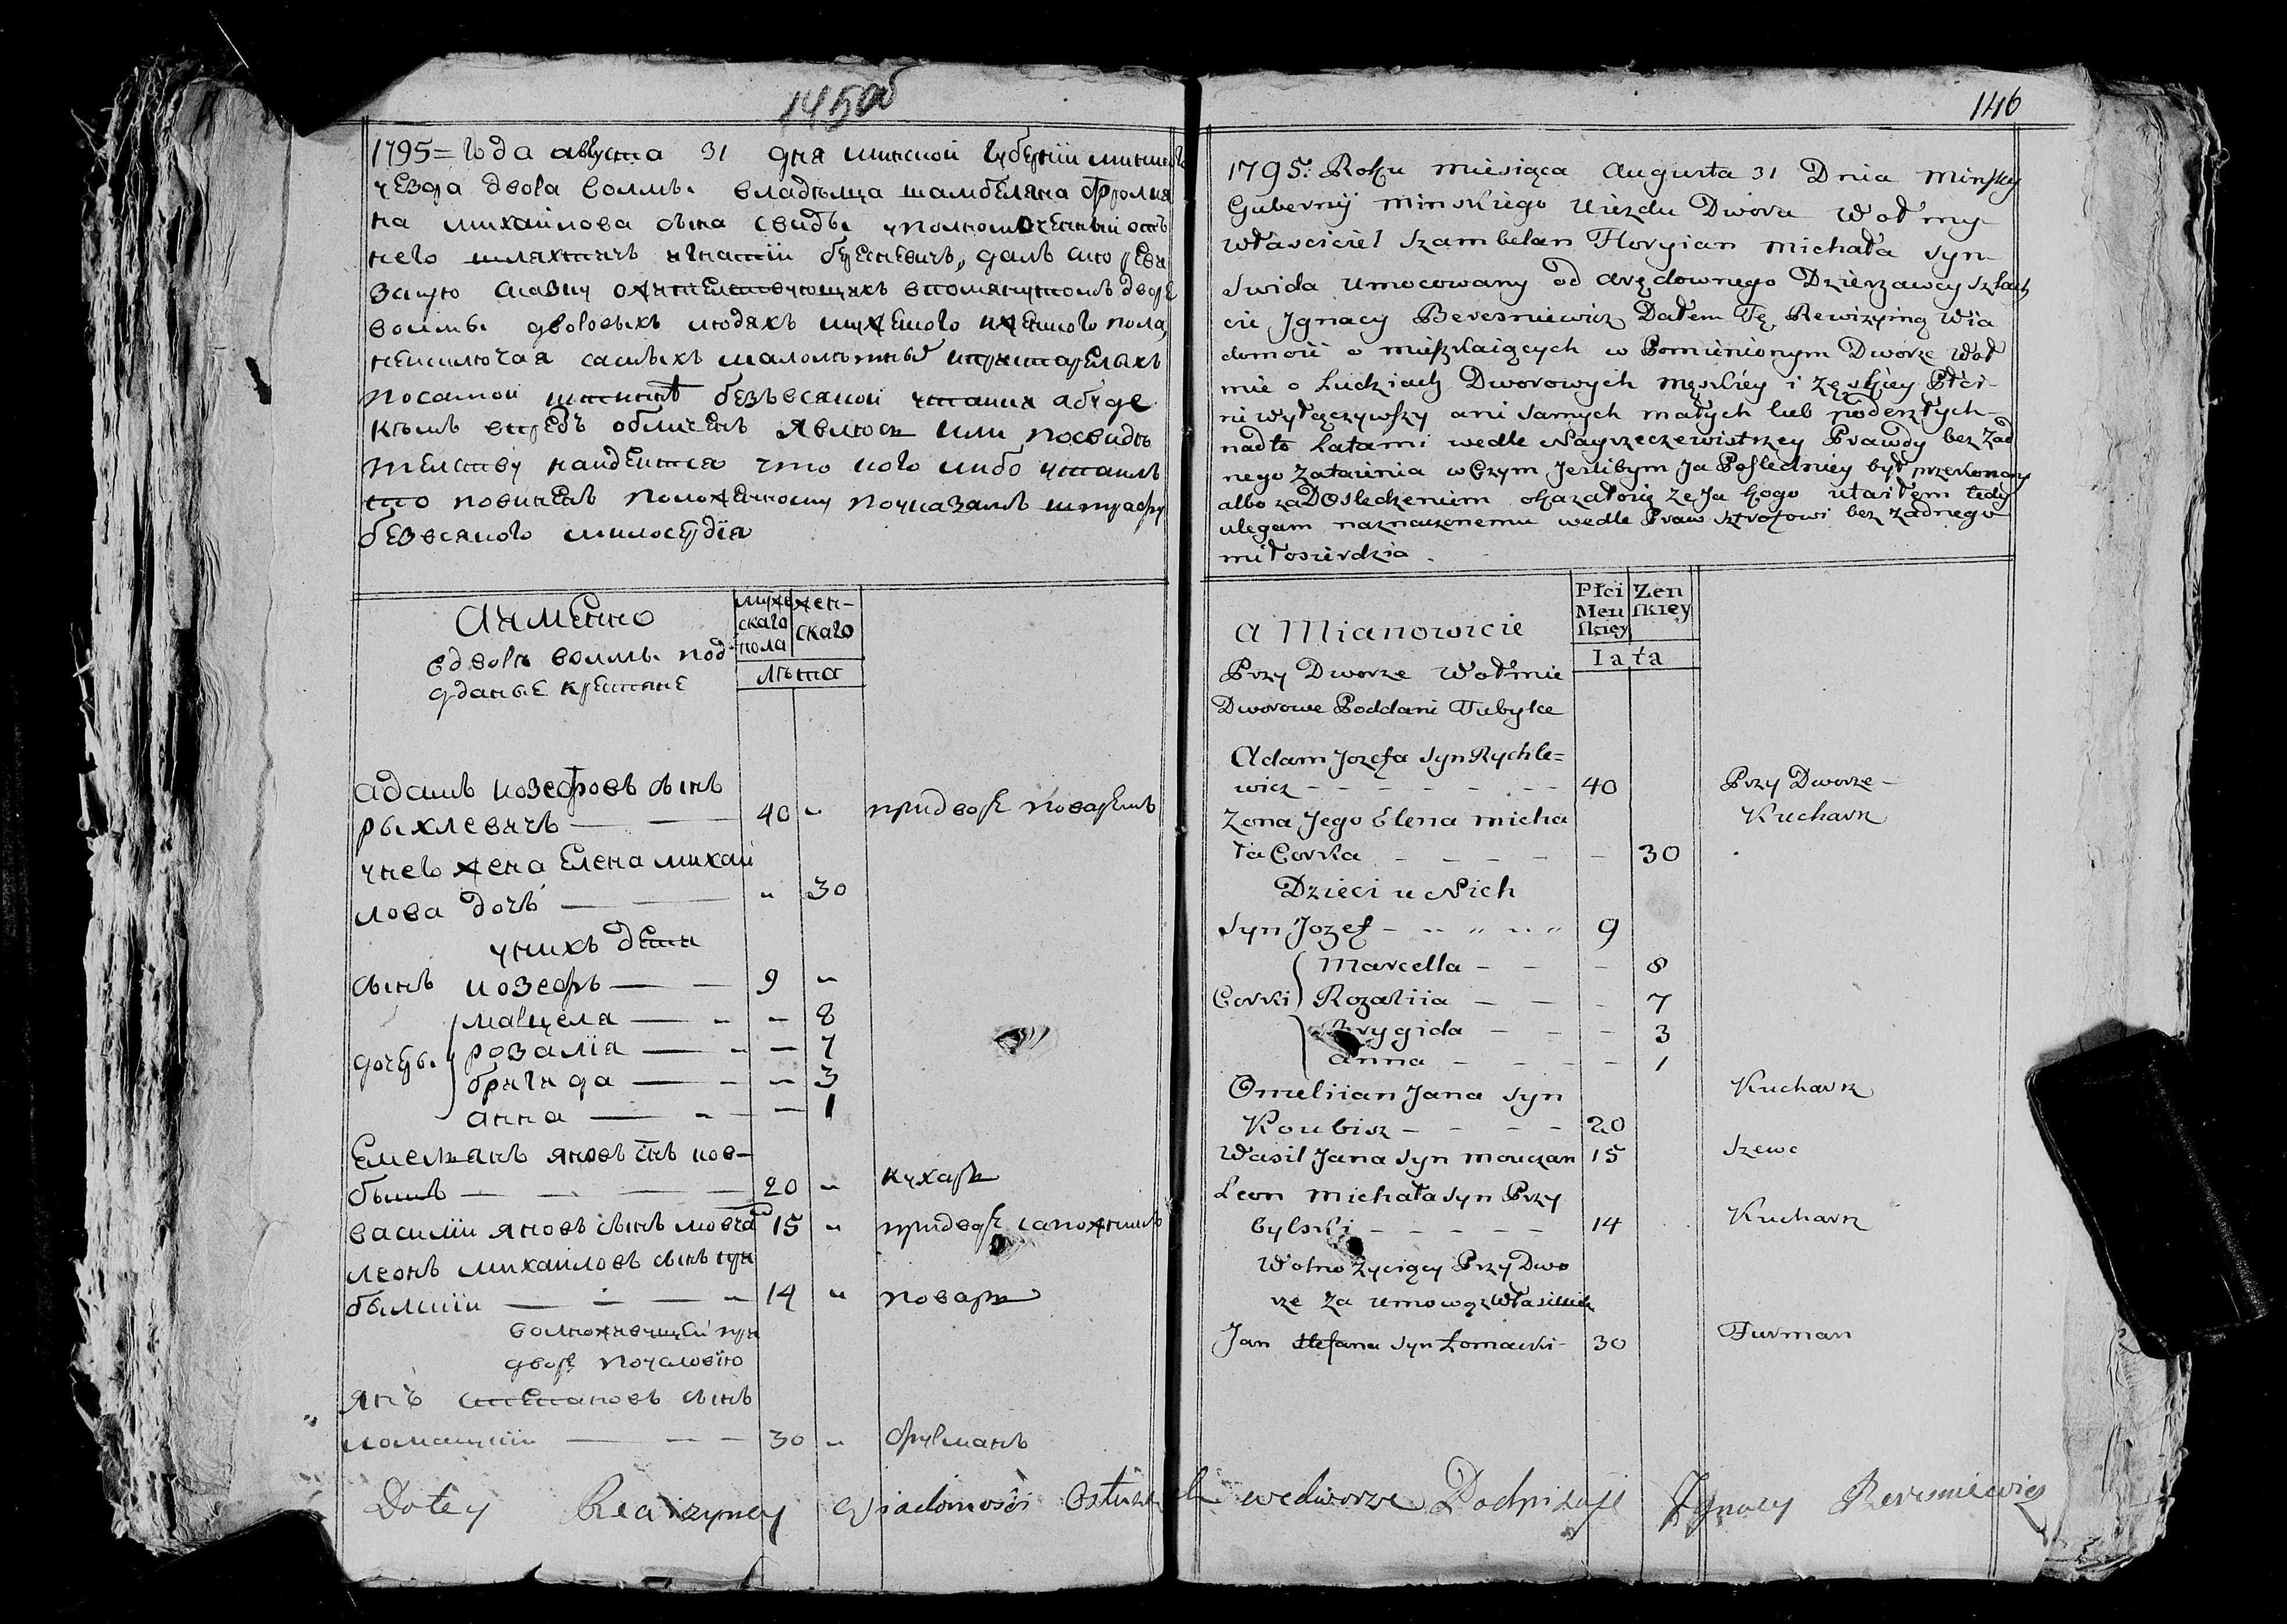 145об
1795= года августа 31 дня минской губернїи минского
уезда двора волмы владельца шамбеляна флория
на михайлова сына свиды уполномоченный отъ
него шляхтичъ игнатїи бересневичъ, далъ сию реви
зскую сказку о жителствующихъ впомянутомъ дворе
волмы дворовыхъ людяхъ мужеского иженского пола,
неисключая самыхъ малолетныхъ ипрестарелыхъ
посамой истинне безъвсякой утайки абуде
кемъ впредъ обличенъ явлюсь или посвиде
телству найдется что кого либо утаилъ
то повиненъ положенному поуказамъ штрафу
безвсякого милосердїя
Аимянно
вдворе волмы под-
даные крестяне
мужескаго пола
женскаго
лета
адамъ иозефовъ сынъ
рыхлевичъ — — 40 " придворе поваремъ
унего жена Елена михай
лова дочь — — " 30
унихъ дети
сынъ иозефъ — — 9 "
марцела — " — 8
дочери розалїя — " — 7
бригида — " — 3
анна — " — 1
Емельянъ яновъ снъ ков-
бышъ — — — — 20 " кухаръ
василїи яновъ сынъ мовчан 15 " придворе сапожникъ
леонъ михайловъ сынъ при
былскїи — — — 14 " поваръ
волноживущїй при
дворе поусловїю
янъ стефановъ сынъ
ломацкїи — — — 30 " фурманъ
146
1795: Roku miesiąca Augusta 31 Dnia Minskey
Gubernij Minskiego Uiezdu Dwora Wołmy
właściciel Szambelan Floryian Michała syn
Swida umocowany od arędownego Dzierzawcy szlach
cic Jgnacy Beresniewicz Dałem Tę Rewizyiną Wia
domość o mieszkaiących w Pomienionym Dworze Woł
mie o Ludziach Dworowych męskiey i zęskiey Płci
ni wyłączywszy ani samych małych lub podeszłych
nadto Latami wedle Nayrzeczewistszey Prawdy bez zad
nego zataienia w Czym Jeslibym Ja Posledniey był przekonany
albo za Dosledzeniem okazałosię ze Ja kogo utaiłem tedy
ulegam naznaczonemu wedle Praw sztrofowi bez zadnego
miłosierdzia.
a Mianowicie
Przy Dworze Wołmie
Dworowe Poddani Tubylce
Płci Menskiey
Zenskiey
Lata
Adam Jozefa syn Rychle=
wicz - - - - - 40 Przy Dworze -
Kucharz
Zona Jego Elena Micha
ła Corka - - - - 30
Dzieci u Nich
syn Jozef - - - 9
Marcella - - - 8
Corki Rozaliia - - - 7
Brygida - - - 3
Anna - - - 1
Omeliian Jana syn Kucharz
Koubisz - - - - 20
Wasil Jana syn Mouczan 15 Szewc
Leon Michała syn Przy
bylski - - - - - 14 Kucharz
Wolno zyiący Przy Dwo
rze za umową
Jan stefana syn Łomacki - 30 Furman
Dotey Rewizyney Wiadomości wedworze Podpisuje Jgnacy Beresniewicz